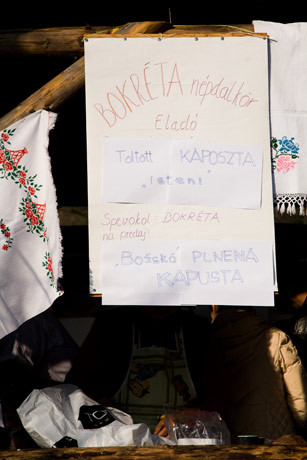 BOKRÉTA népdalkör
Eladó
Töltött KÁPOSZTA
"Isteni"
Spevokol - BOKRÉTA
na predaj
"Božská" PLNENÁ
KAPUSTA